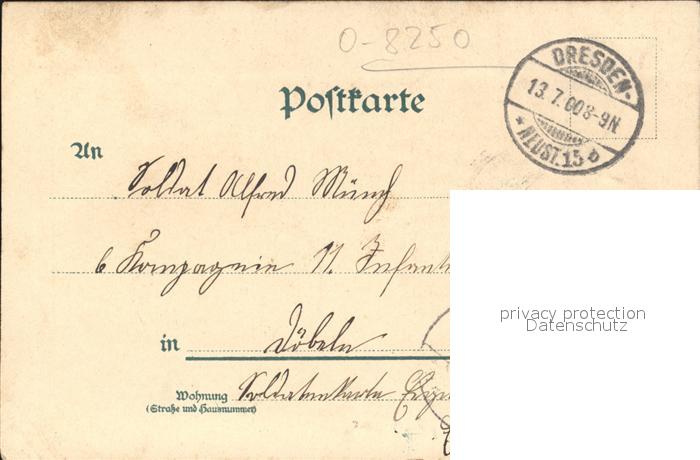 O-8250
DRESDEN-
13.7.00 8-9N
* NEUST. 15 d
Postkarte
An
Soldat Alfred Münch
6 Kompagnie 11. Infant
privacy protection
Datenschutz
in Döbeln
Wohnung Soldatenkarte
(Straße und Hausnummer)